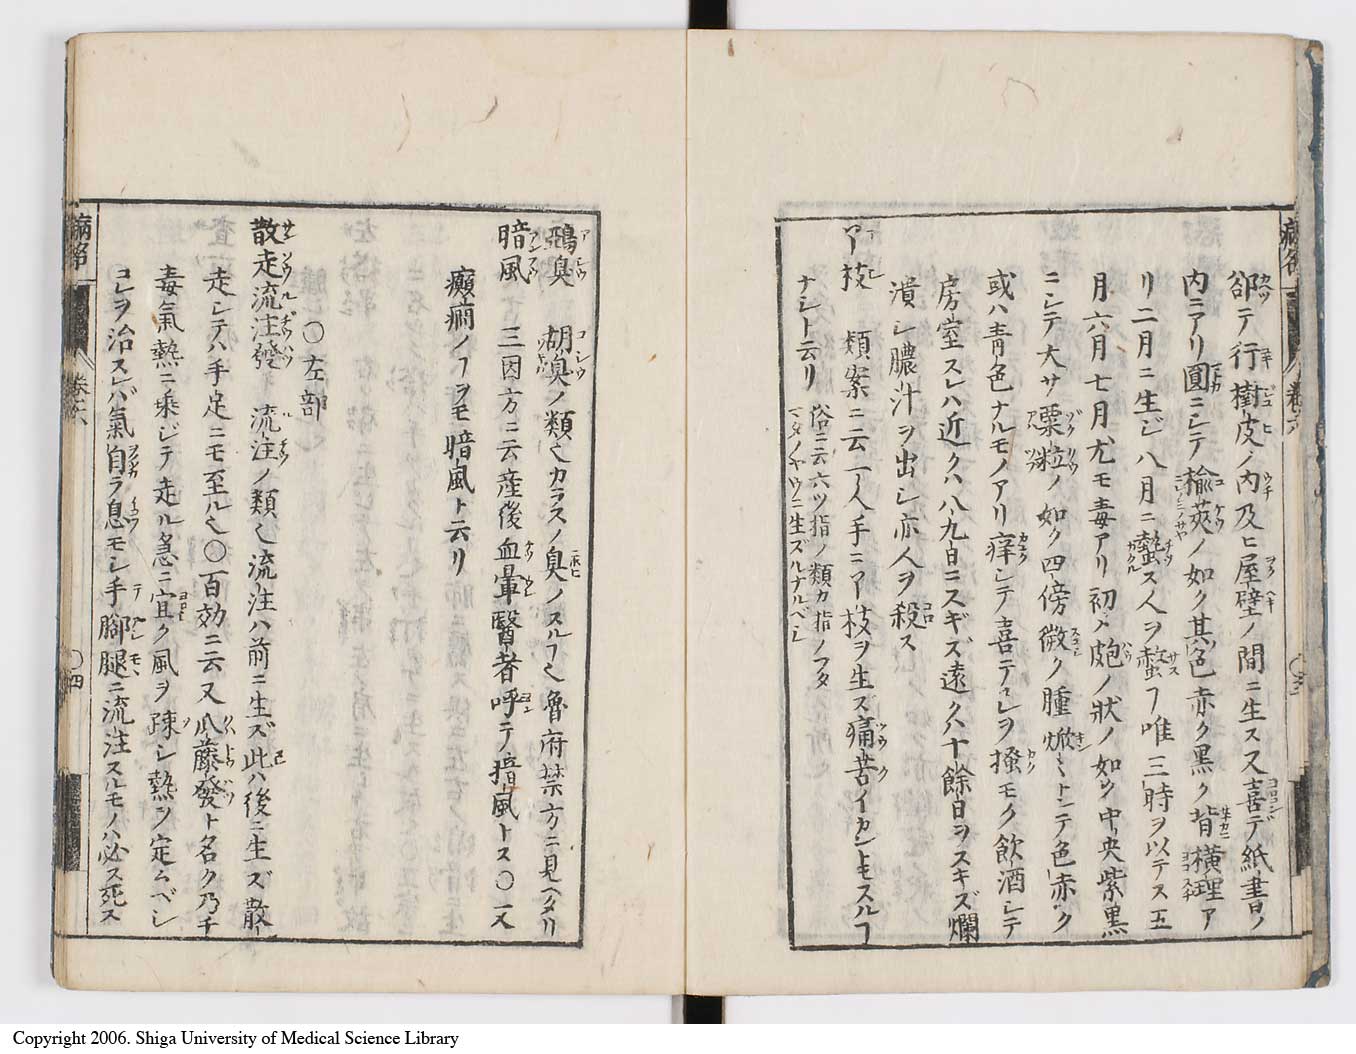 郤テ行樹皮ノ内及ヒ屋壁ノ間ニ生ス又喜テ紙書ノ
内ニアリ圓ニシテ榆莢ノ如ク其色赤ク黒ク背橫理ア
リ二月ニ生ジ八月ニ蟄ス人ヲ螫ヿ唯三時ヲ以テス五
月六月七月尤モ毒アリ初メ皰ノ狀ノ如ク中央紫黒
ニシテ大サ粟粒ノ如ク四傍微ク腫焮々トシテ色赤ク
或ハ青色ナルモノアリ痒シテ喜テコレヲ搔モク飲酒シテ
房室スレハ近クハ八九日ニスギズ遠クハ十餘日ヲスギズ爛
潰シ膿汁ヲ出シ亦人ヲ殺ス
丫枝 類案ニ云一人手ニ丫枝ヲ生ズ痛苦イカントモスルヿ
ナシト云リ 俗ニ云六ツ指ノ類カ指ノフタ
マタノヤウニ生ズルナルベシ
病名
卷六
鵶臭 胡臭ノ類也カラスノ臭ノスルヿ也魯府禁方ニ見ヘタリ
暗風 三因方ニ云産後血暈醫者呼テ暗風トス○又
癲癇ノヿヲモ暗風ト云リ
○左部
散走流注發 流注ノ類也流注ハ前ニ生ズ此ハ後ニ生ズ散
走シテハ手足ニモ至ル也○百効ニ云又瓜藤發ト名ク乃チ
毒氣熱ニ乘ジテ走ル急ニ宜ク風ヲ疎シ熱ヲ定ムベシ
コレヲ治スレバ氣自ラ息モシ手脚腿ニ流注スルモノハ必ス死ス
病名
卷六
○四
Copyright 2006. Shiga University of Medical Science Library